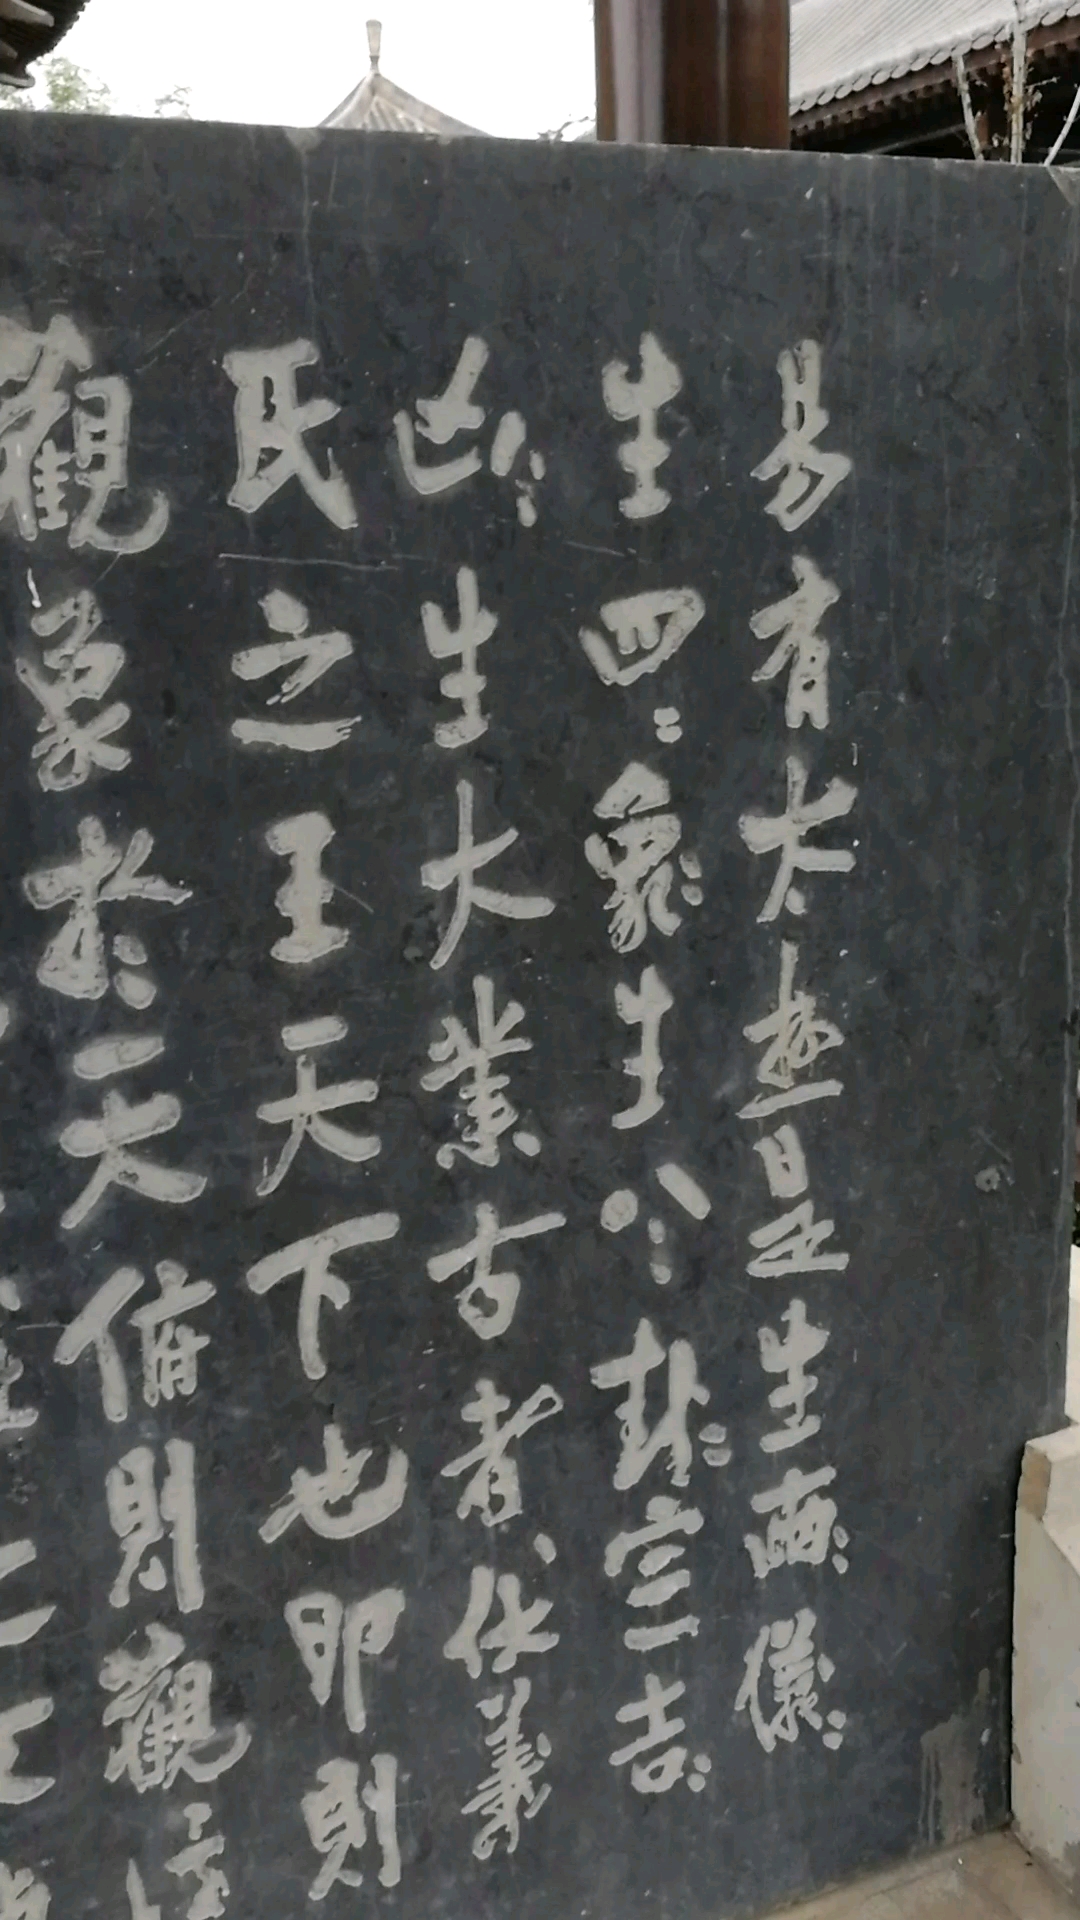 易有太極是生兩〻儀〻
生四〻象〻生八〻卦〻定吉〻
凶〻生大業古者伏羲
氏之王天下也卬則
觀象於天俯則觀法